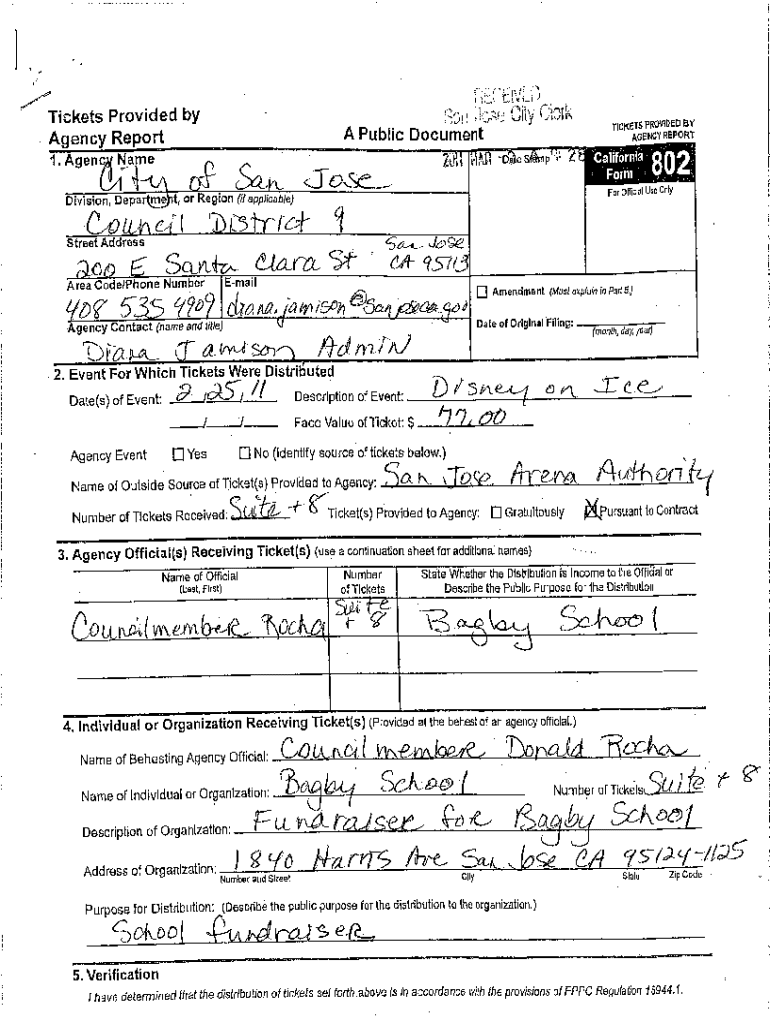 RECEIVED
San Jose City Clerk
Tickets Provided by
Agency Report
A Public Document
TICKETS PROVIDED BY
AGENCY REPORT
1. Agency Name
Date Stamp
California
Form 802
For Official Use Only
City of San Jose
Division, Department, or Region (if applicable)
Council District 9
Street Address
200 E Santa Clara St San Jose CA 95113
Area Code/Phone Number E-mail
408 535 4909 diana.jamison@sanjoseca.gov
Amendment (Must explain in Part 5.)
Date of Original Filing:
(month, day, year)
Agency Contact (name and title)
Diana Jamison Admin
2. Event For Which Tickets Were Distributed
Date(s) of Event: 2, 25, 11 Description of Event: Disney on Ice
/ / Face Value of Ticket: $ 77.00
Agency Event Yes No (identify source of tickets below.)
Name of Outside Source of Ticket(s) Provided to Agency: San Jose Arena Authority
Number of Tickets Received: Suite + 8 Ticket(s) Provided to Agency: Gratuitously X Pursuant to Contract
3. Agency Official(s) Receiving Ticket(s) (use a continuation sheet for additional names)
Name of Official
(Last, First)
Number
of Tickets
State Whether the Distribution is Income to the Official or
Describe the Public Purpose for the Distribution
Councilmember Rocha Suite + 8 Bagby School
4. Individual or Organization Receiving Ticket(s) (Provided at the behest of an agency official.)
Name of Behesting Agency Official: Councilmember Donald Rocha
Name of Individual or Organization: Bagby School Number of Tickets: Suite + 8
Description of Organization: Fundraiser for Bagby School
Address of Organization: 1840 Harris Ave San Jose CA 95124-1125
Number and Street City State Zip Code
Purpose for Distribution: (Describe the public purpose for the distribution to the organization.)
School fundraiser
5. Verification
I have determined that the distribution of tickets set forth above is in accordance with the provisions of FPPC Regulation 18944.1.